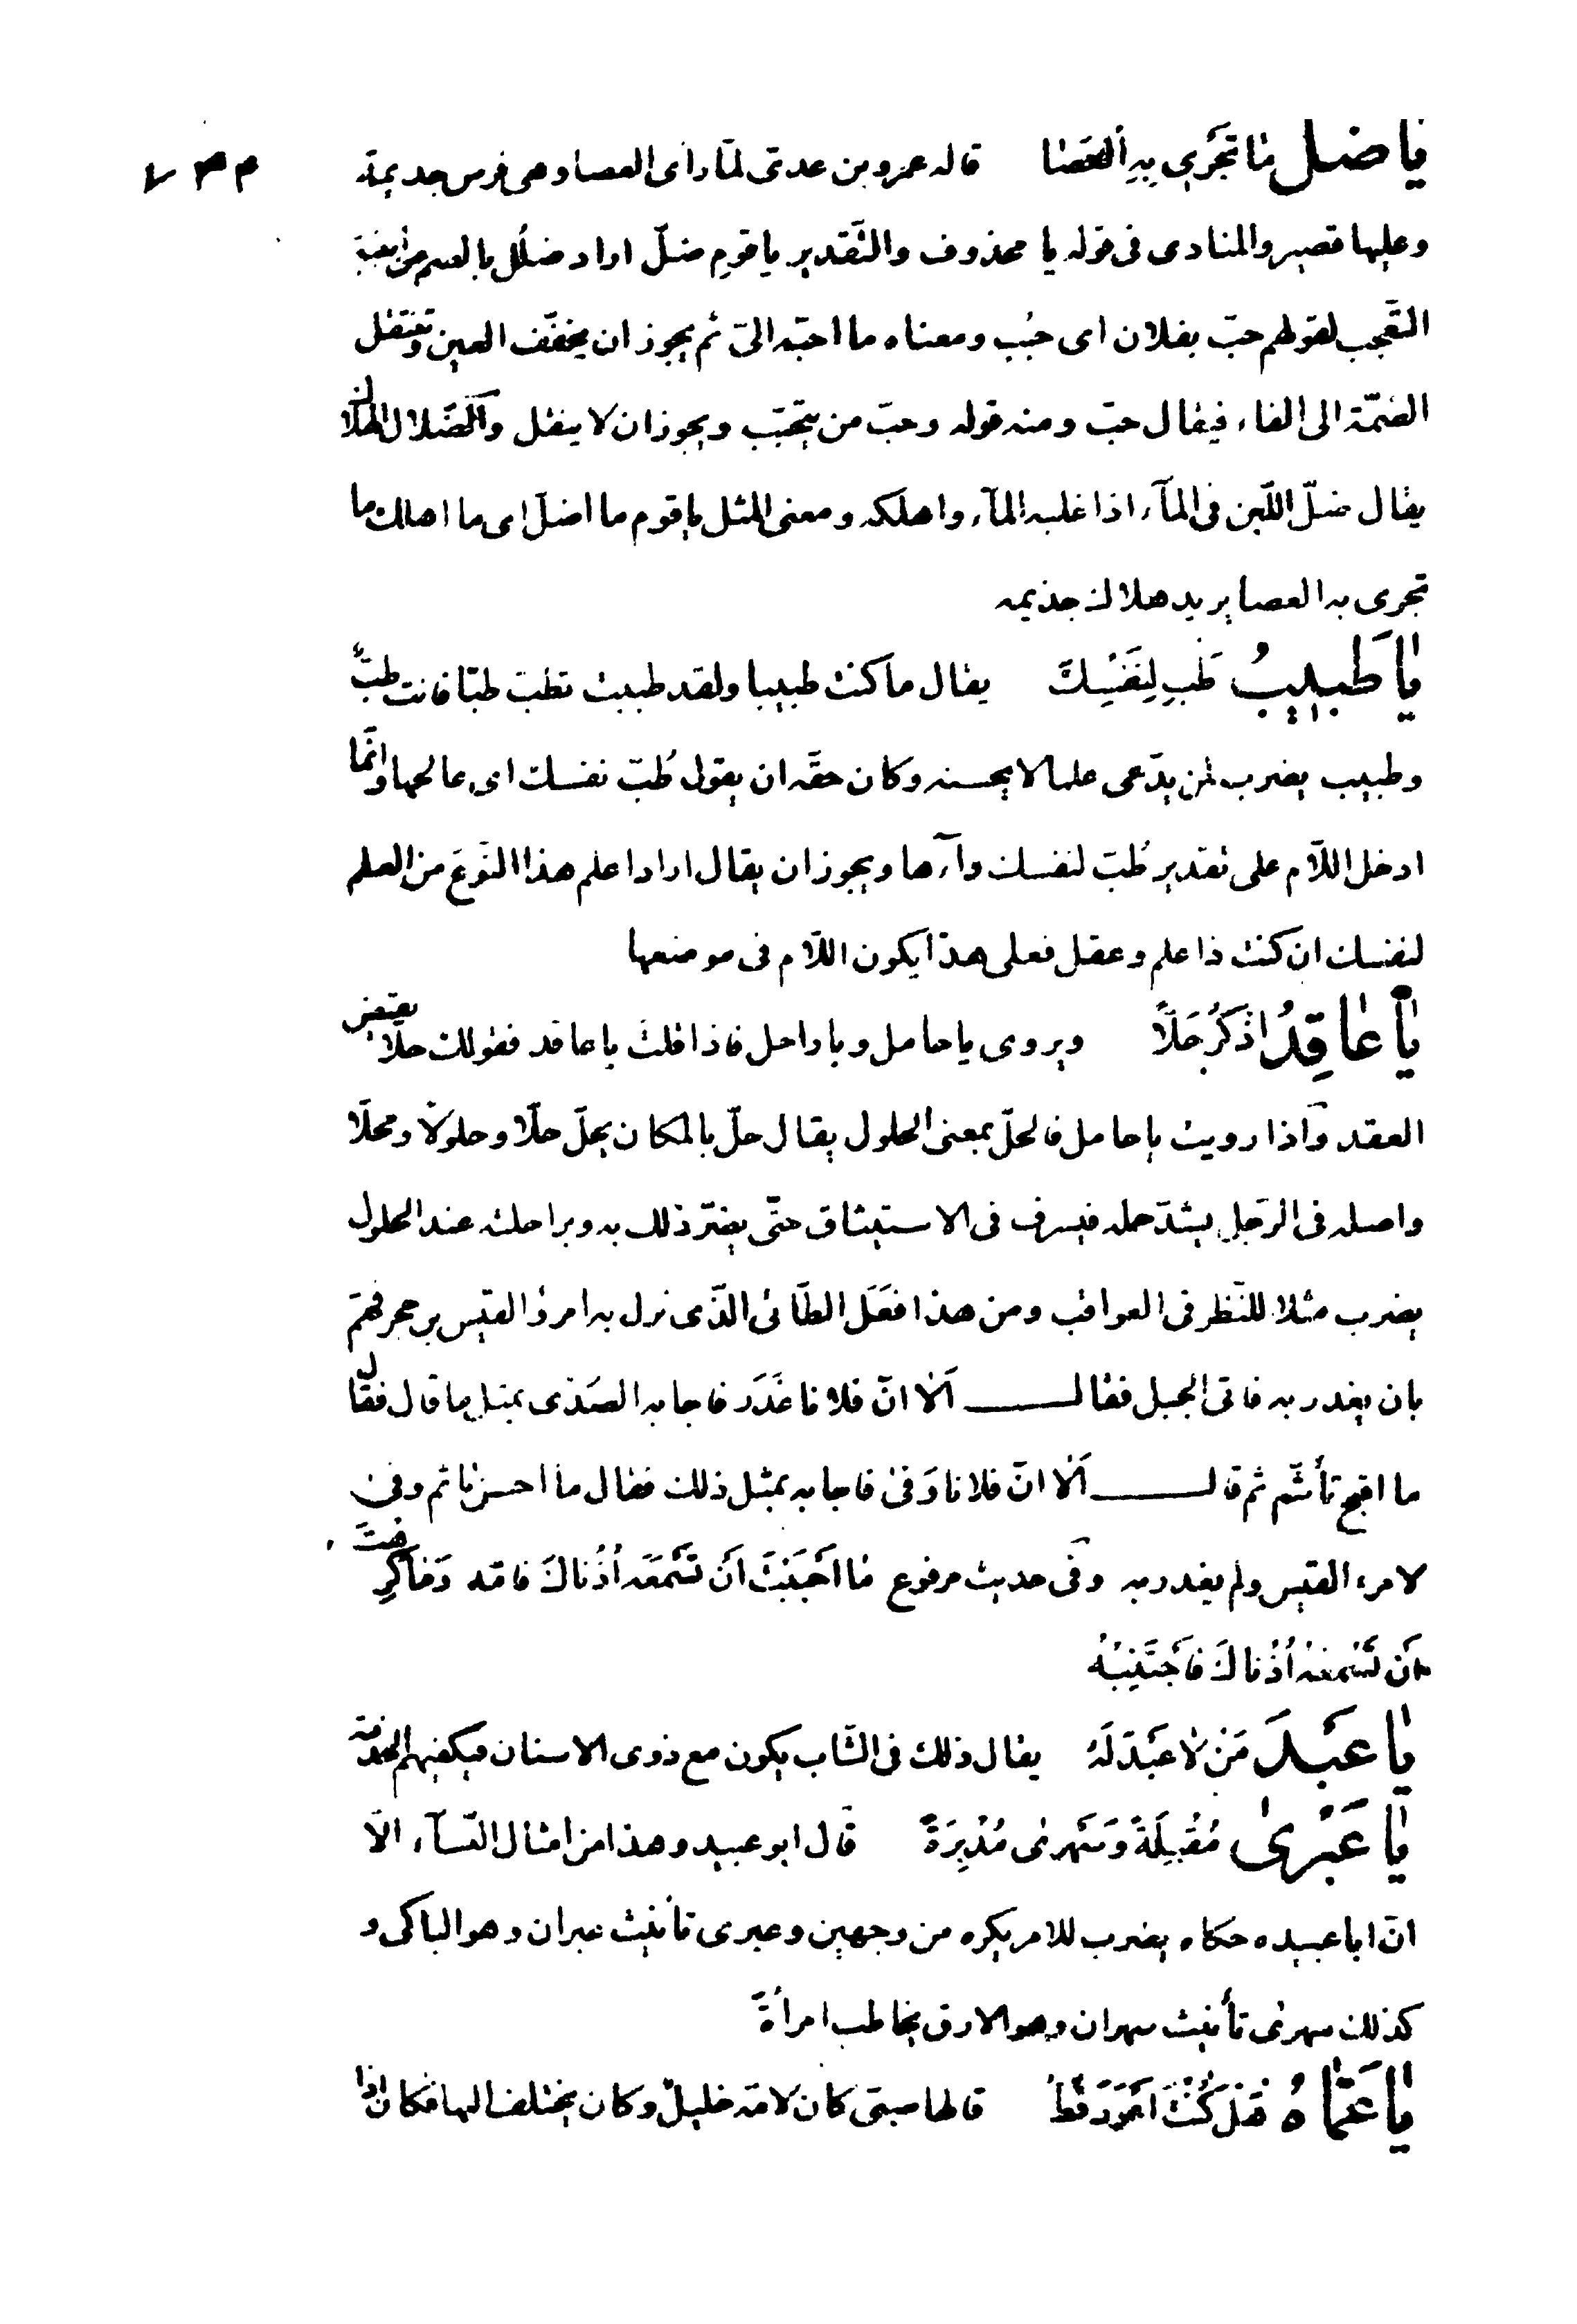 يا ضل ما تجري به العصا قاله عمرو بن عدي لما راى العصا وهى فرس جديمة
وعليها قصير والمنادى فى قوله يا محذوف والتقدير يا قوم ضلّ اراد ضلل بالضم من ابنية
التعجب لقولهم حبّ بفلان اى حبب ومعناه ما احبّه الىّ ثم يجوز ان يخفّف العين وتنتقل
الضمّة الى الفاء فيقال حبّ ومنه قوله وحبّ من يتجنّب ويجوز ان لا ينقل والضلال الهلاك
يقال ضلّ اللّبن فى المآء اذا غلبه المآء واهلكه ومعنى المثل يا قوم ما اضلّ اى ما اهلك ما
تجرى به العصا يريد هلاك جذيمه
يَا طَبِيبُ طُبَّ لِنَفْسِكَ يقال ما كنت طبيبا ولقد طببت تطبّ طبّا فانت طبٌّ
وطبيب يضرب لمن يدّعى علما لا يحسنه وكان حقّه ان يقول طُبّ نفسك اى عالجها وانّما
ادخل اللّام على تقدير طُبّ لنفسك دآءها ويجوز ان يقال اراد اعلم هذا النّوع من العلم
لنفسك ان كنت ذا علم وعقل فعلى هذا يكون اللّام فى موضعها
يَا عَاقِدُ اذْكُرْ حَلًّا ويروى يا حامل ويا راحل فاذا قلت يا عاقد فقولك حلّا يقتضى
العقد واذا رويت يا حامل فالحلّ بمعنى الحلول يقال حلّ بالمكان يحلّ حلّا وحلولا ومحلّا
واصله فى الرّجل يشدّ حمله فيسرف فى الاستيثاق حتّى يضرّ ذلك به وبراحلته عند الحلول
يضرب مثلا للنّظر فى العواقب ومن هذا فعَل الطّائى الذّى نزل به امرؤ القيس بن حجر فهمّ
بان يغدر به فاتى الجبل فقال ألا انّ فلانا غَدَر فاجابه الصَدى بمثل ما قال فقال
ما اقبح تأثّم ثم قال ألا انّ فلانا وَفى فاجابه بمثل ذلك فقال ما احسن تاثم وفى
لامرء القيس ولم يغدر به وفى حديث مرفوع مَا اَحْبَبْتَ اَنْ تَسْمَعَه اُذُناكَ فاته وَمَا كَرِهْتَ
اَنْ تَسْمَعَهُ اُذُناكَ فاَجْتَنِبْهُ
يَا عَبْدَ مَنْ لَا عَبْدَ لَهُ يقال ذلك فى الشّاب يكون مع ذوى الاسنان فيكفيهم الخدمة
يَا عَبْرىٰ مُقْبِلَةً وَسَهْرىٰ مُدْبِرَةً قال ابو عبيد وهذا من امثال النّسآء الّا
انّ ابا عبيده حكاه يضرب للامر يكره من وجهين وعبرى تأنيث عبران وهو الباكى و
كذلك سهرى تأنيث سهران وهو الارق يخاطب امرأة
يَا عَمَّاهُ هَلْ كُنْتَ اَعْوَرَ قَطُّ قالها صبىّ كان لامّه خليلٌ وكان يختلف اليها فكان اذا